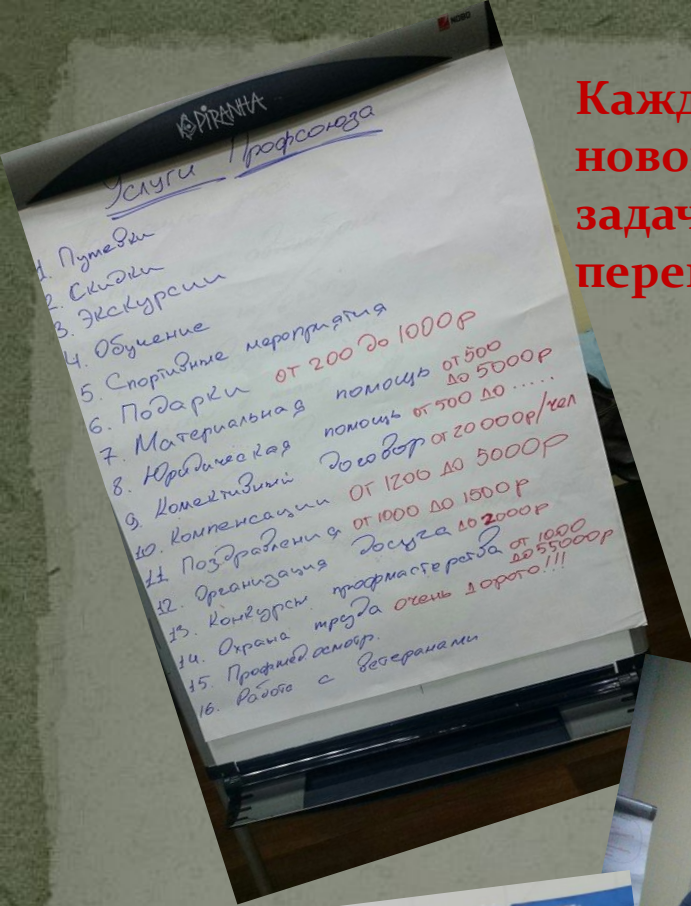 NOBO
PIRANHA
Услуги Профсоюза
1. Путевки
2. Скидки
3. Экскурсии
4. Обучение
5. Спортивные мероприятия
6. Подарки от 200 до 1000р
7. Материальная помощь от 500 до 5000р
8. Юридическая помощь от 500 до .....
9. Колективный договор от 20000р/чел
10. Компенсации от 1200 до 5000р
11. Поздравления от 1000 до 1500р
12. Организация досуга до 2000р
13. Конкурсы профмастерства от 1000 до 55000р
14. Охрана труда очень дорого!!!
15. Профмед осмотр.
16. Работа с ветеранами
Кажд
ново
задач
пере